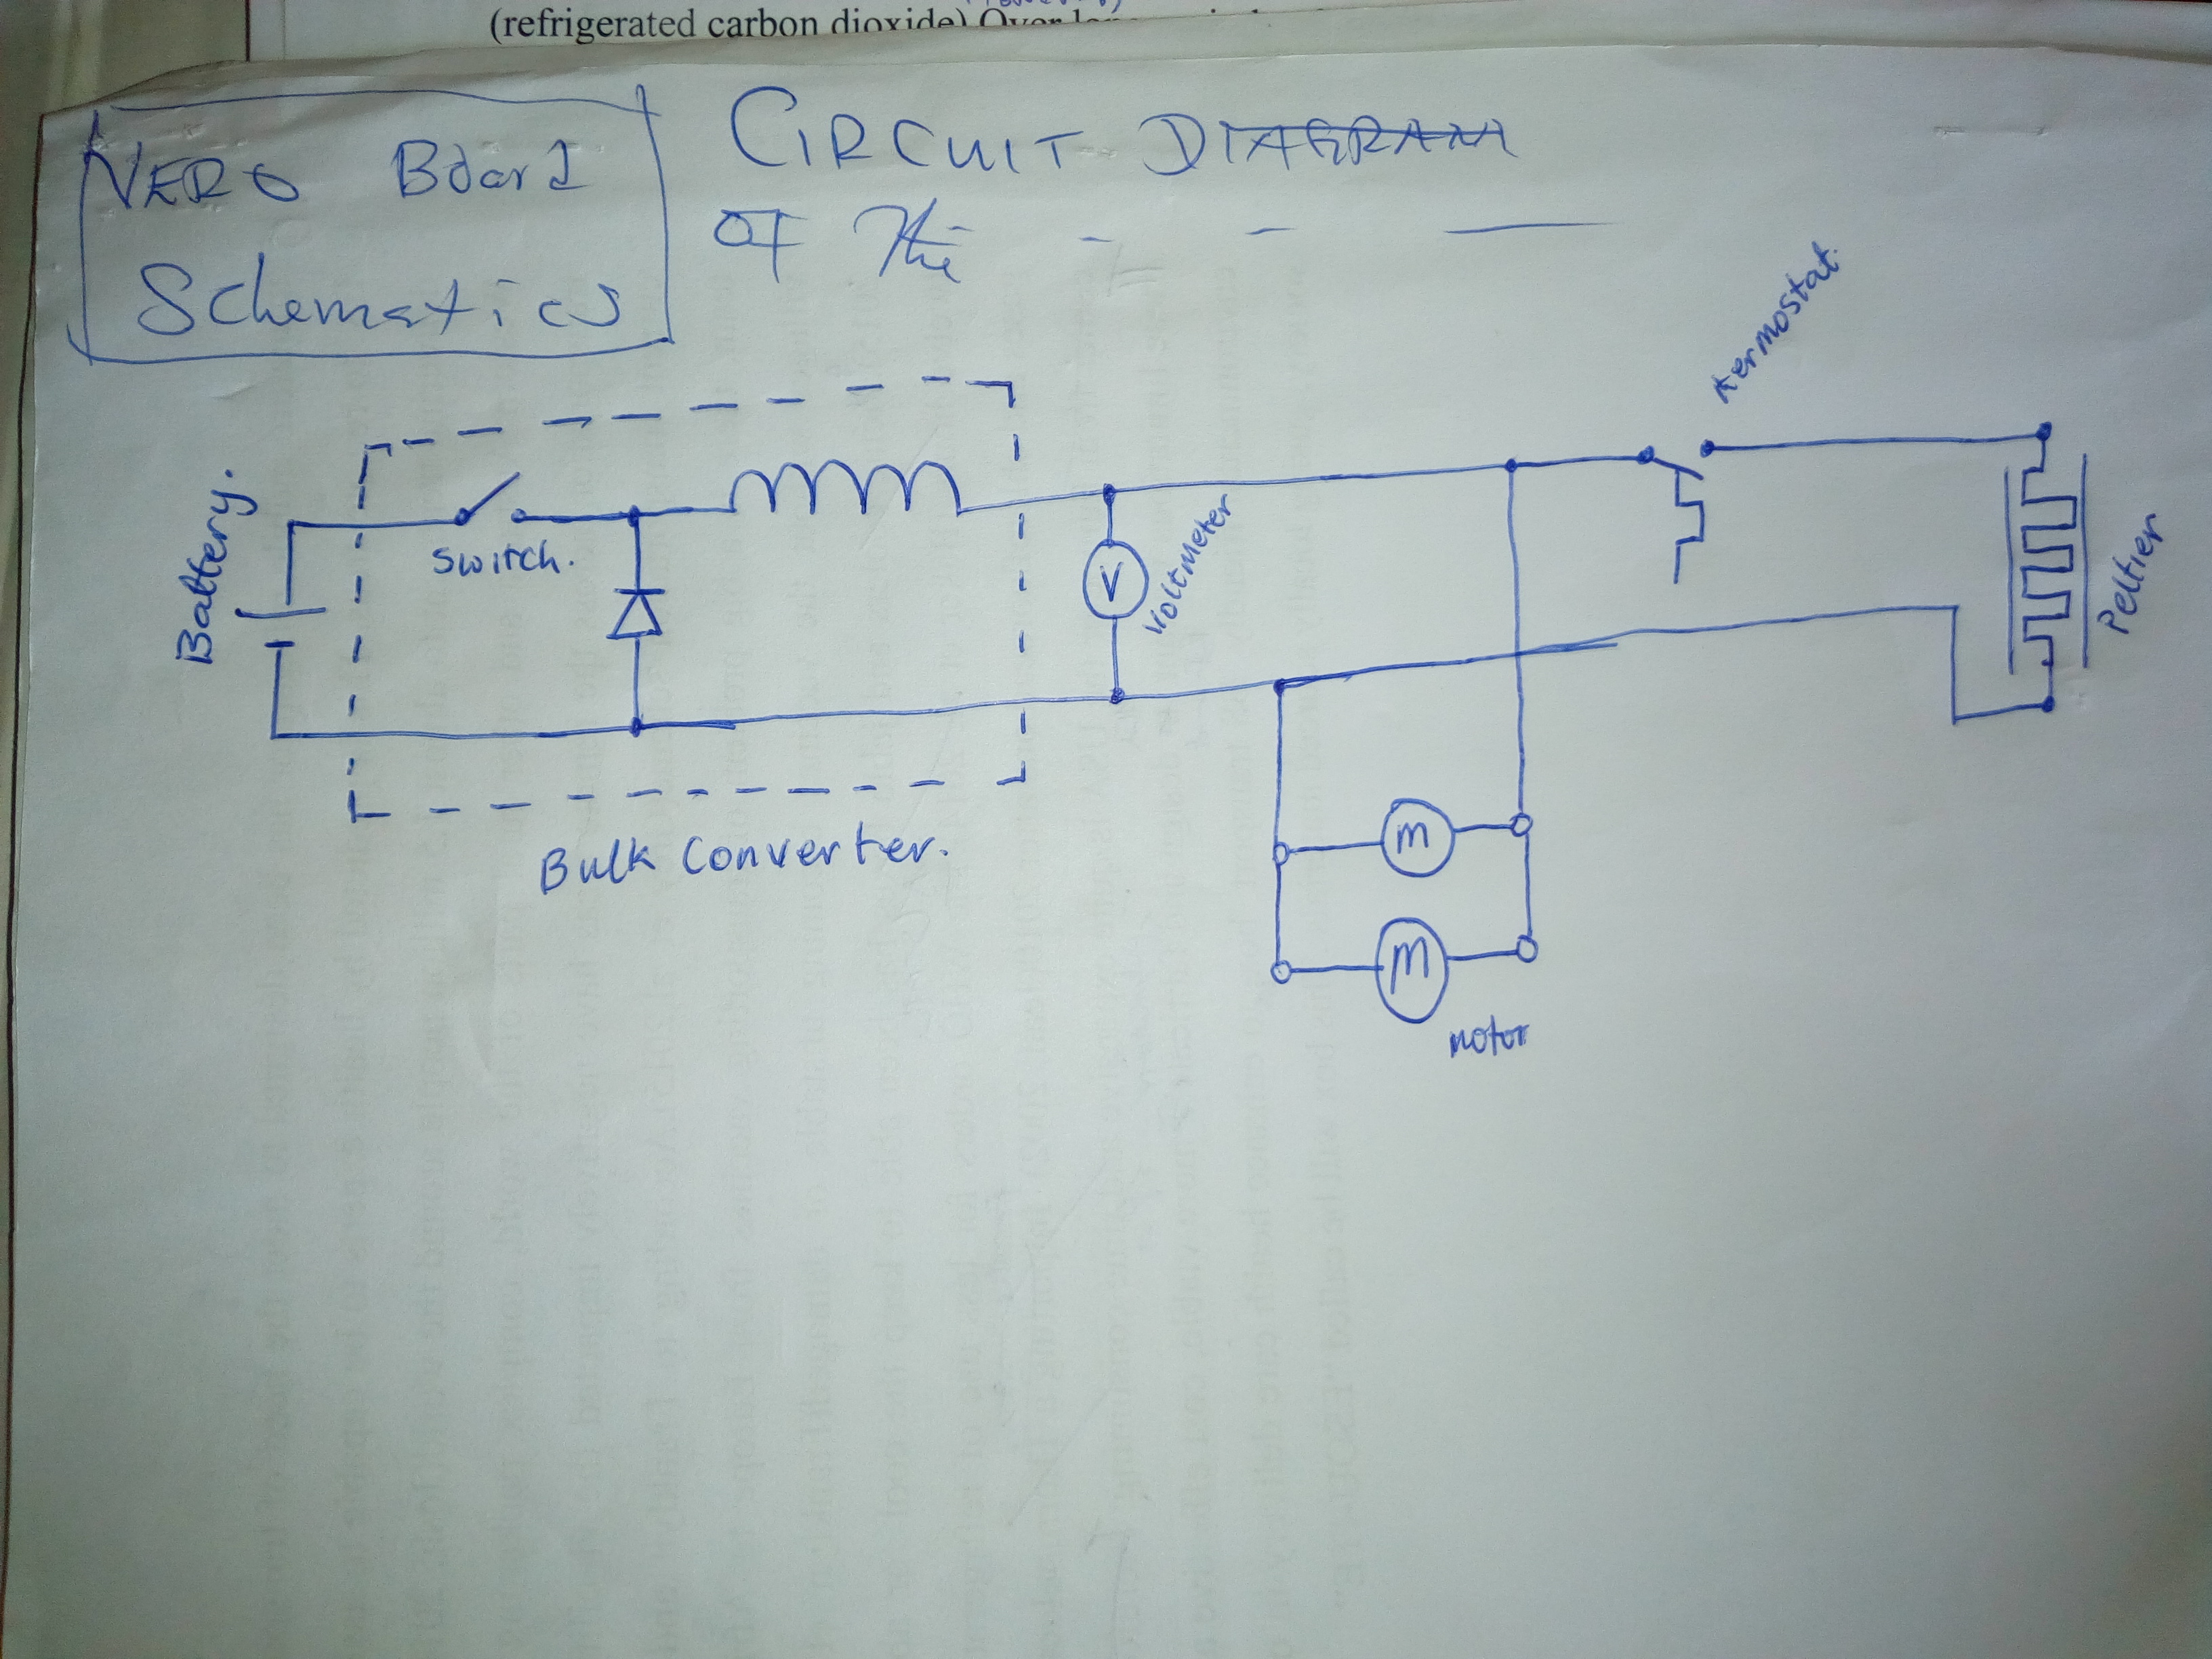 (refrigerated carbon dioxide) Over
VERO Board
Schematics
CIRCUIT DIAGRAM
OF The - - —
thermostat.
Battery.
Switch.
V
Voltmeter
Peltier
Bulk Converter.
m
M
motor